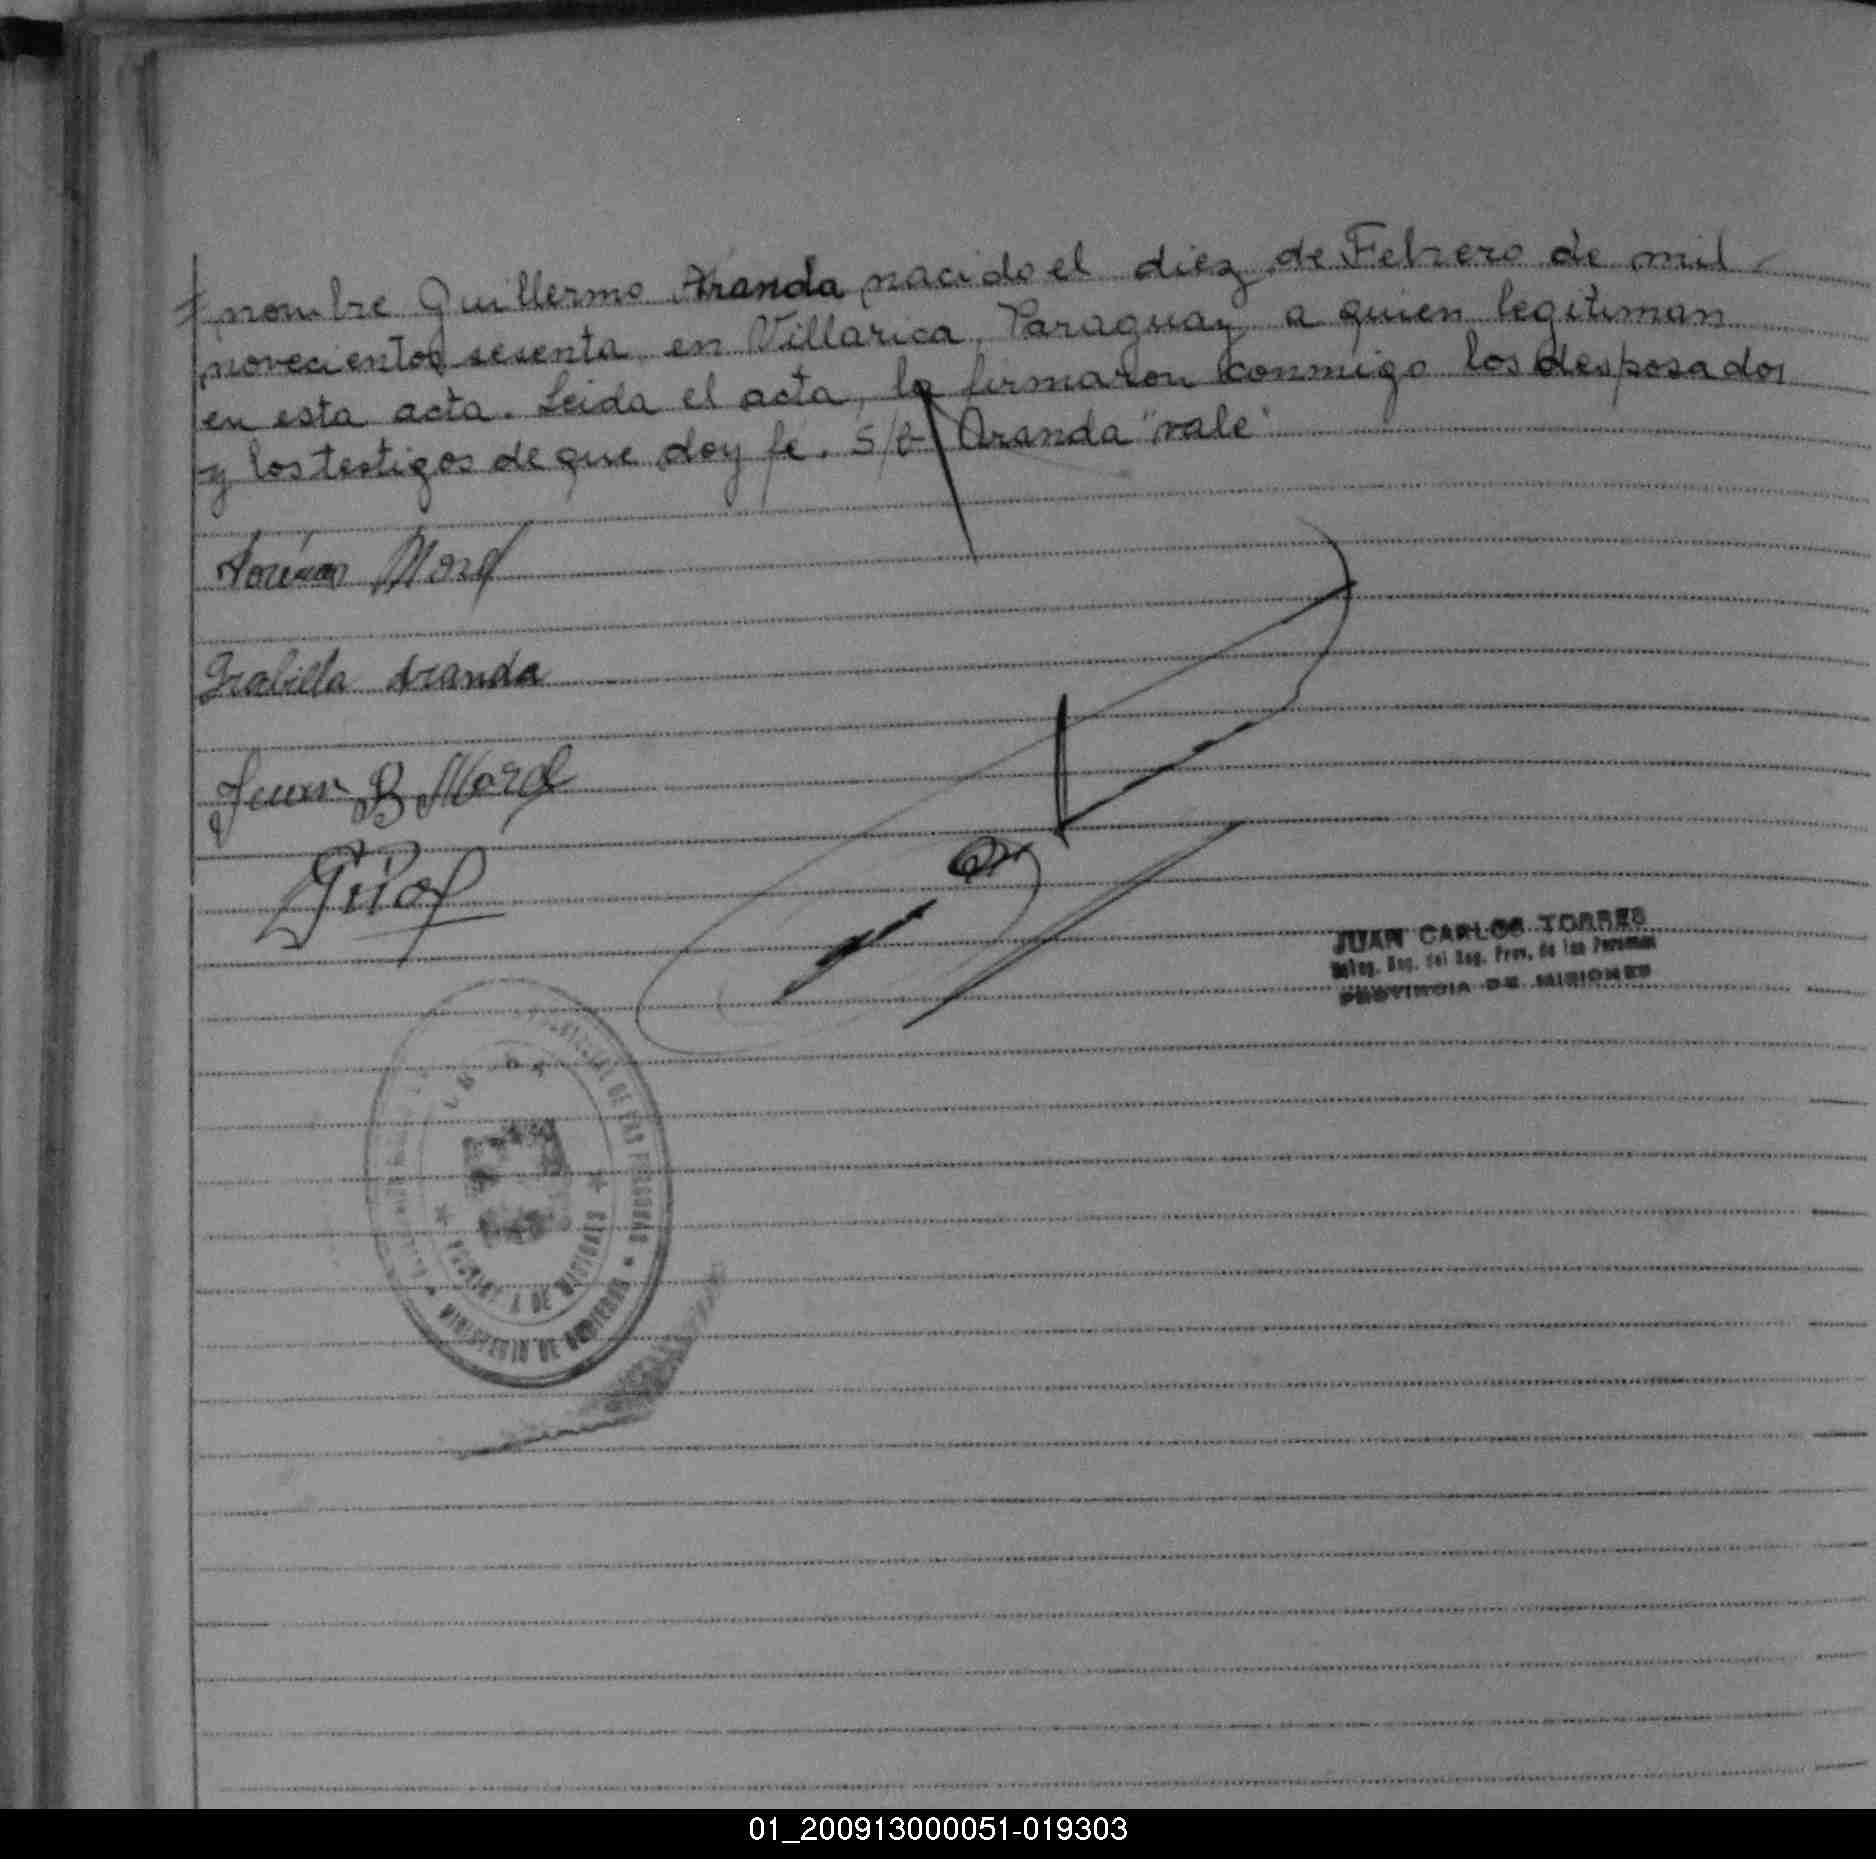 nombre Guillermo Aranda nacido el diez de Febrero de mil
novecientos sesenta en Villarica, Paraguay a quien legitiman
en esta acta. Leida el acta, la firmaron conmigo los desposados
y los testigos de que doy fé. S/b Aranda "vale"
Aranda
Juan B
JUAN CARLOS TORRES
Deleg. Reg. del Reg. Prov. de las Personas
PROVINCIA DE MISIONES
DE LAS PERSONAS
MINISTERIO DE GOBIERNO
01_200913000051-019303